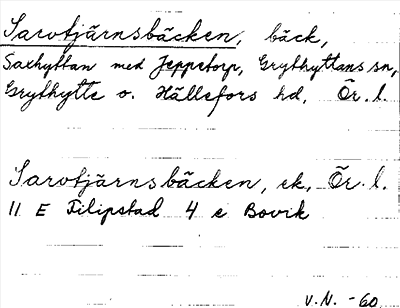 Sarvtjärnsbäcken, bäck,
Saxhyttan med Jeppetorp, Grythyttans sn,
Grythytte o. Hällefors hd, Ör. l.
Sarvtjärnsbäcken, ek, Ör. l.
11 E Filipstad 4 e Bovik
V.N. -60